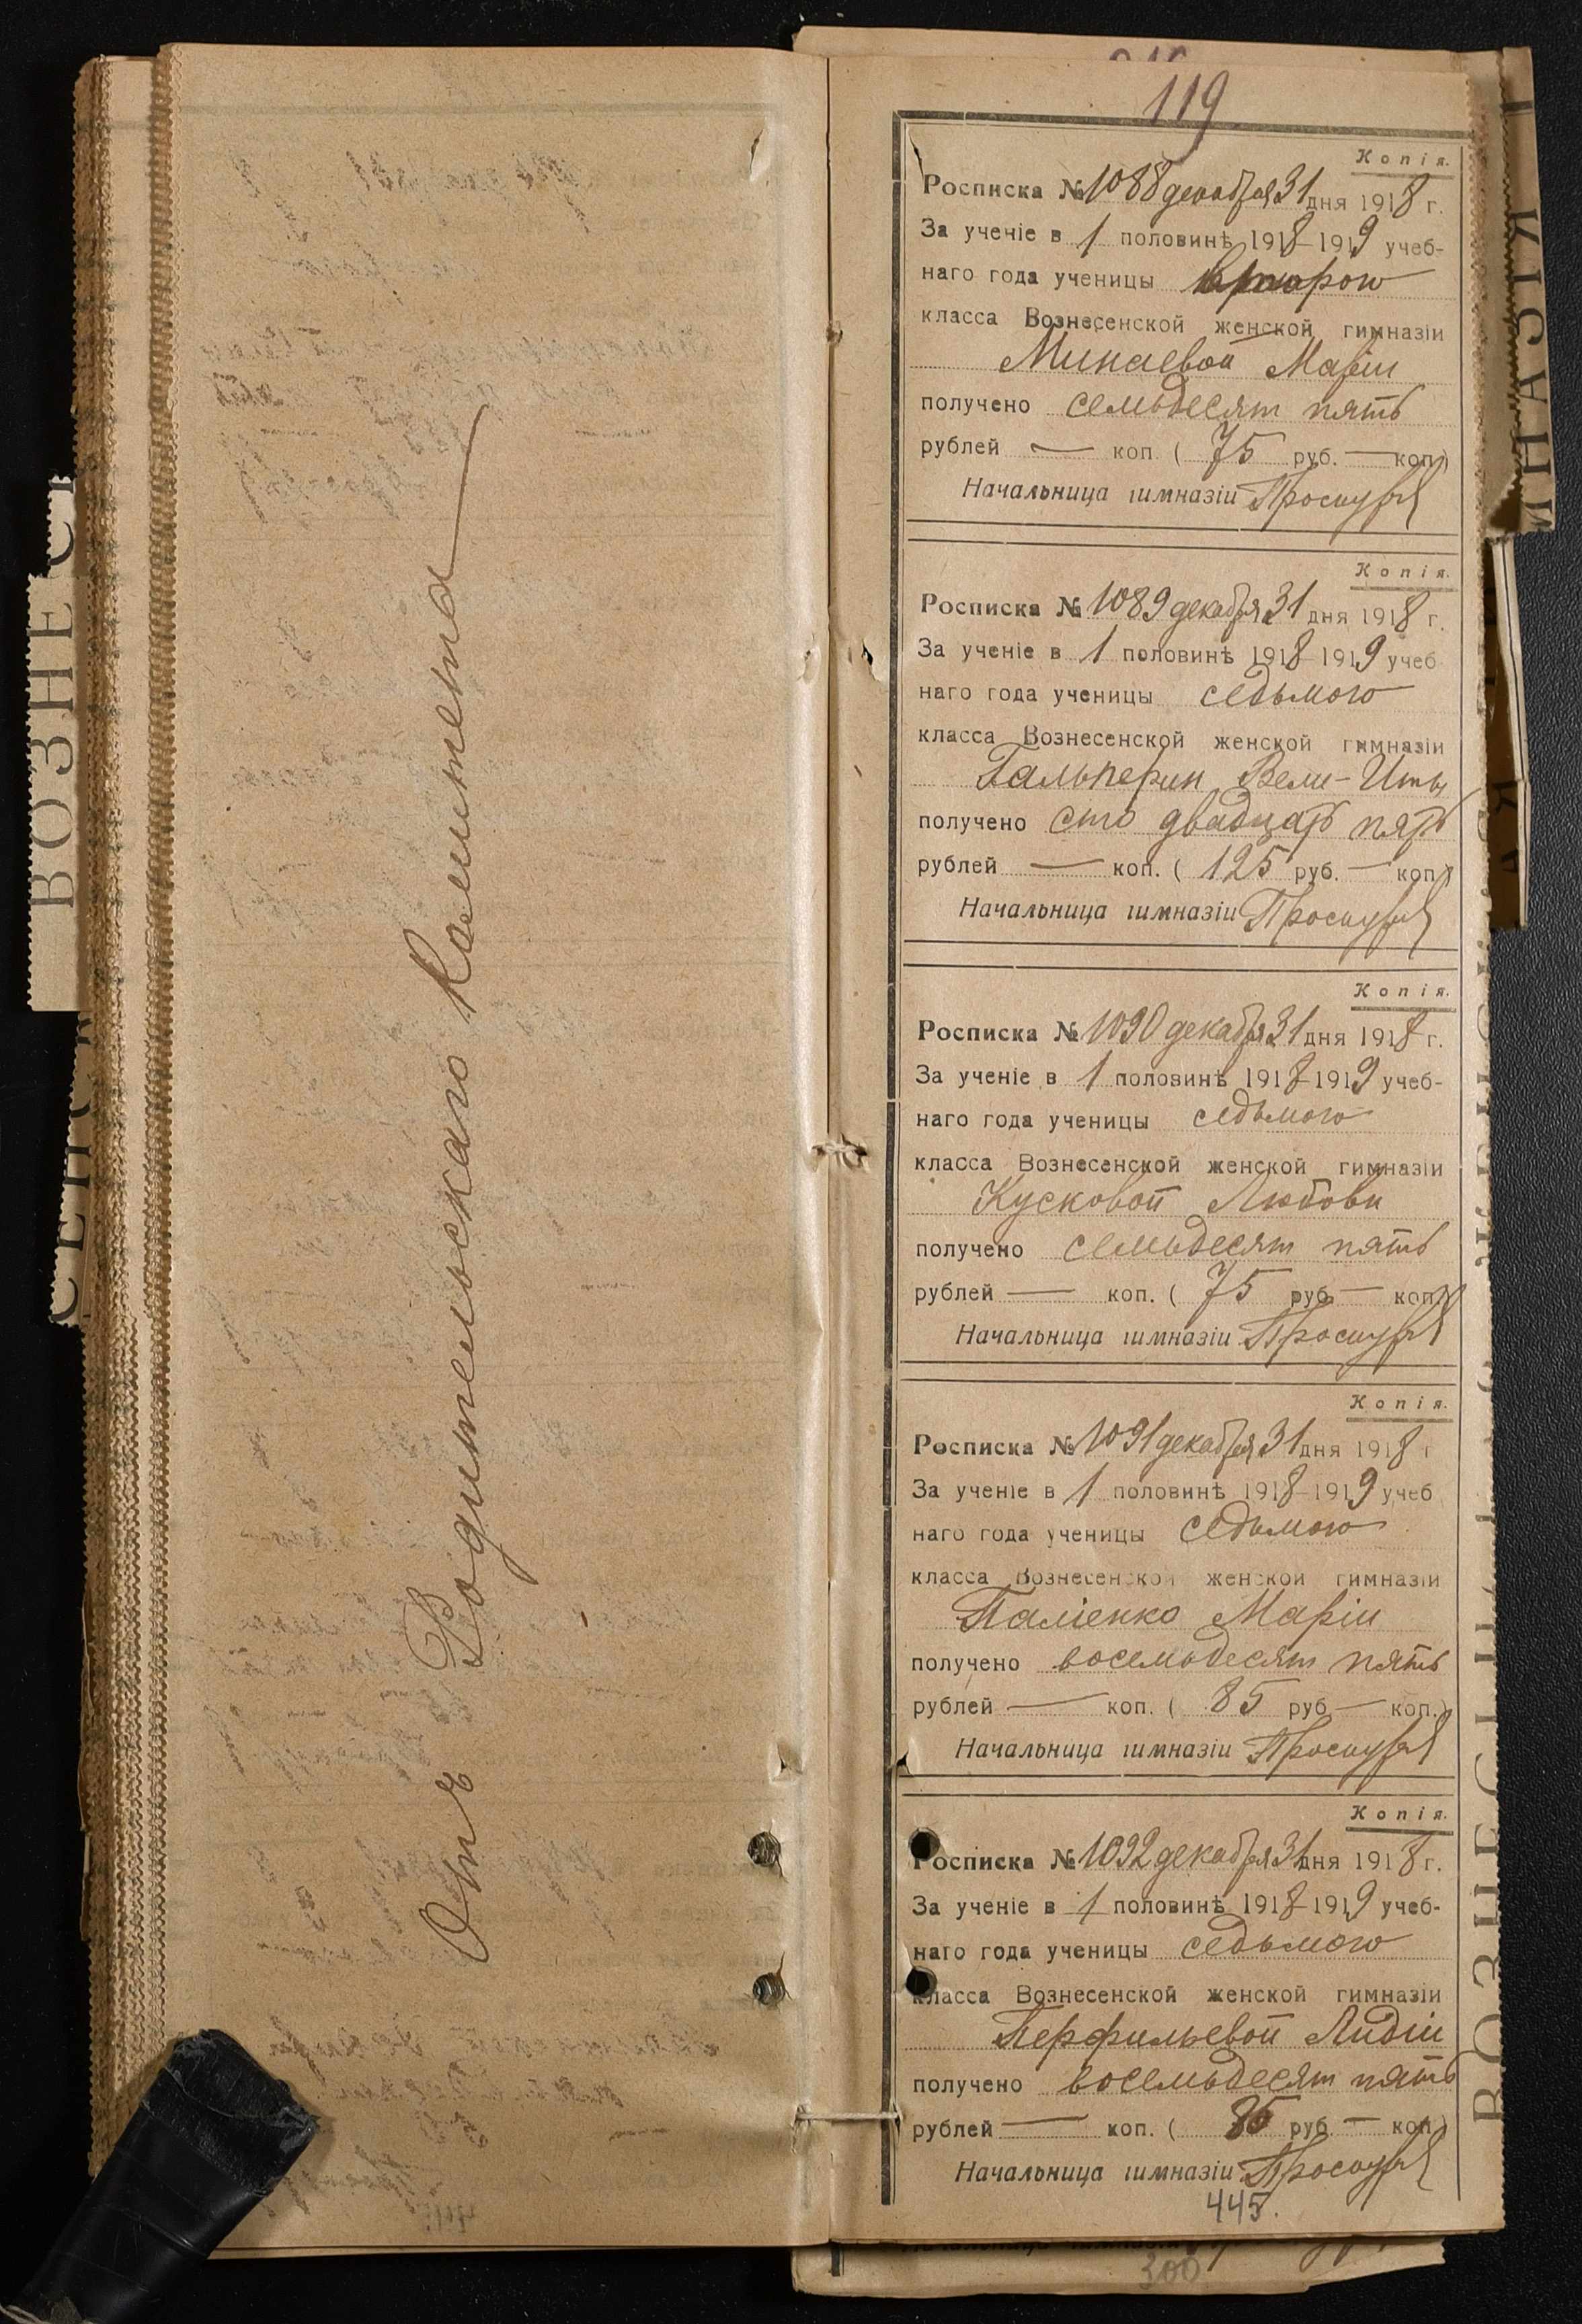 Отъ Родительскаго Комитета
119
Копія.
Росписка № 1088 декабря 31 дня 1918 г.
За ученіе в 1 половинѣ 1918-1919 учеб-
наго года ученицы второго
класса Вознесенской женской гимназіи
Минаевой Маріи
получено семьдесят пять
рублей — коп. ( 75 руб. — коп.)
Начальница гимназіи
Копія.
Росписка № 1089 декабря 31 дня 1918 г.
За ученіе в 1 половинѣ 1918-1919 учеб
наго года ученицы седьмого
класса Вознесенской женской гимназіи
Гальперин Вели-Иты
получено сто двадцать пять
рублей — коп. ( 125 руб. — коп.)
Начальница гимназіи
Копія.
Росписка № 1090 декабря 31 дня 1918 г.
За ученіе в 1 половинѣ 1918-1919 учеб-
наго года ученицы седьмого
класса Вознесенской женской гимназіи
Кусковой Любови
получено семьдесят пять
рублей — коп. ( 75 руб. — коп.)
Начальница гимназіи
Копія.
Росписка № 1091 декабря 31 дня 1918 г
За ученіе в 1 половинѣ 1918-1919 учеб
наго года ученицы седьмого
класса Вознесенской женской гимназіи
Паліенко Маріи
получено восемьдесят пять
рублей — коп. ( 85 руб. — коп.)
Начальница гимназіи
Копія.
Росписка № 1092 декабря 31 дня 1918 г.
За ученіе в 1 половинѣ 1918-1919 учеб-
наго года ученицы седьмого
класса Вознесенской женской гимназіи
Перфильевой Лидіи
получено восемьдесят пять
рублей — коп. ( 85 руб. — коп)
Начальница гимназіи
445.
300
ВОЗНЕС